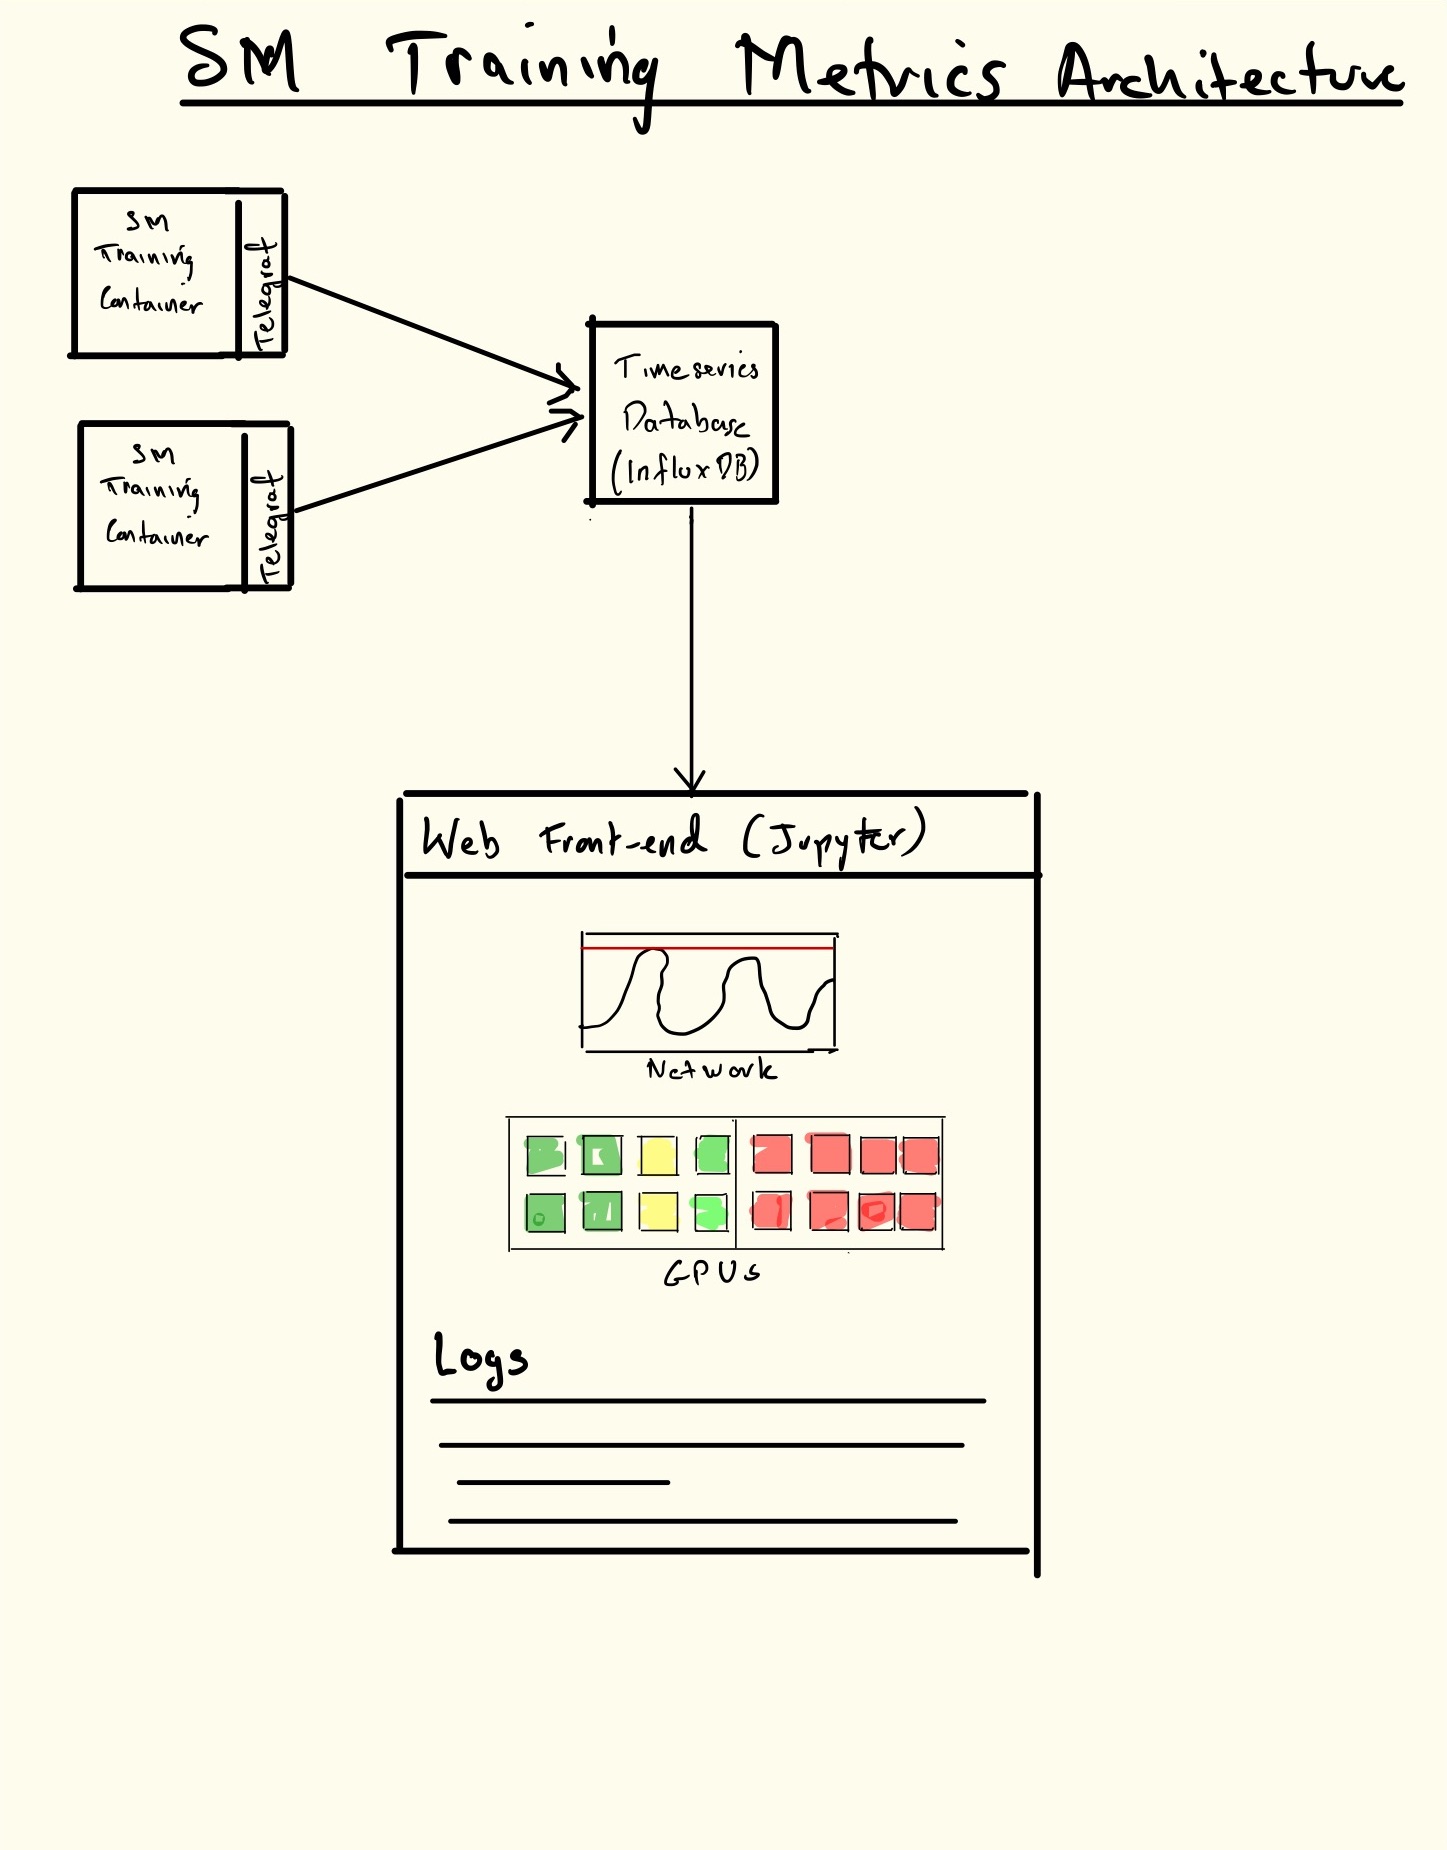 SM Training Metrics Architecture
SM
Training
Container
Telegraf
SM
Training
Container
Telegraf
Timeseries
Database
(InfluxDB)
Web Front-end (Jupyter)
Network
GPUs
Logs